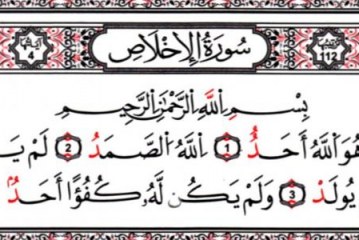 آياتها 4 سُورَةُ الْإِخْلَاصِ 112
بِسْمِ اللَّهِ الرَّحْمَٰنِ الرَّحِيمِ
هُوَ اللَّهُ أَحَدٌ 1 اللَّهُ الصَّمَدُ 2 لَمْ يَـ
يُولَدْ 3 وَلَمْ يَكُن لَّهُ كُفُوًا أَحَدٌ